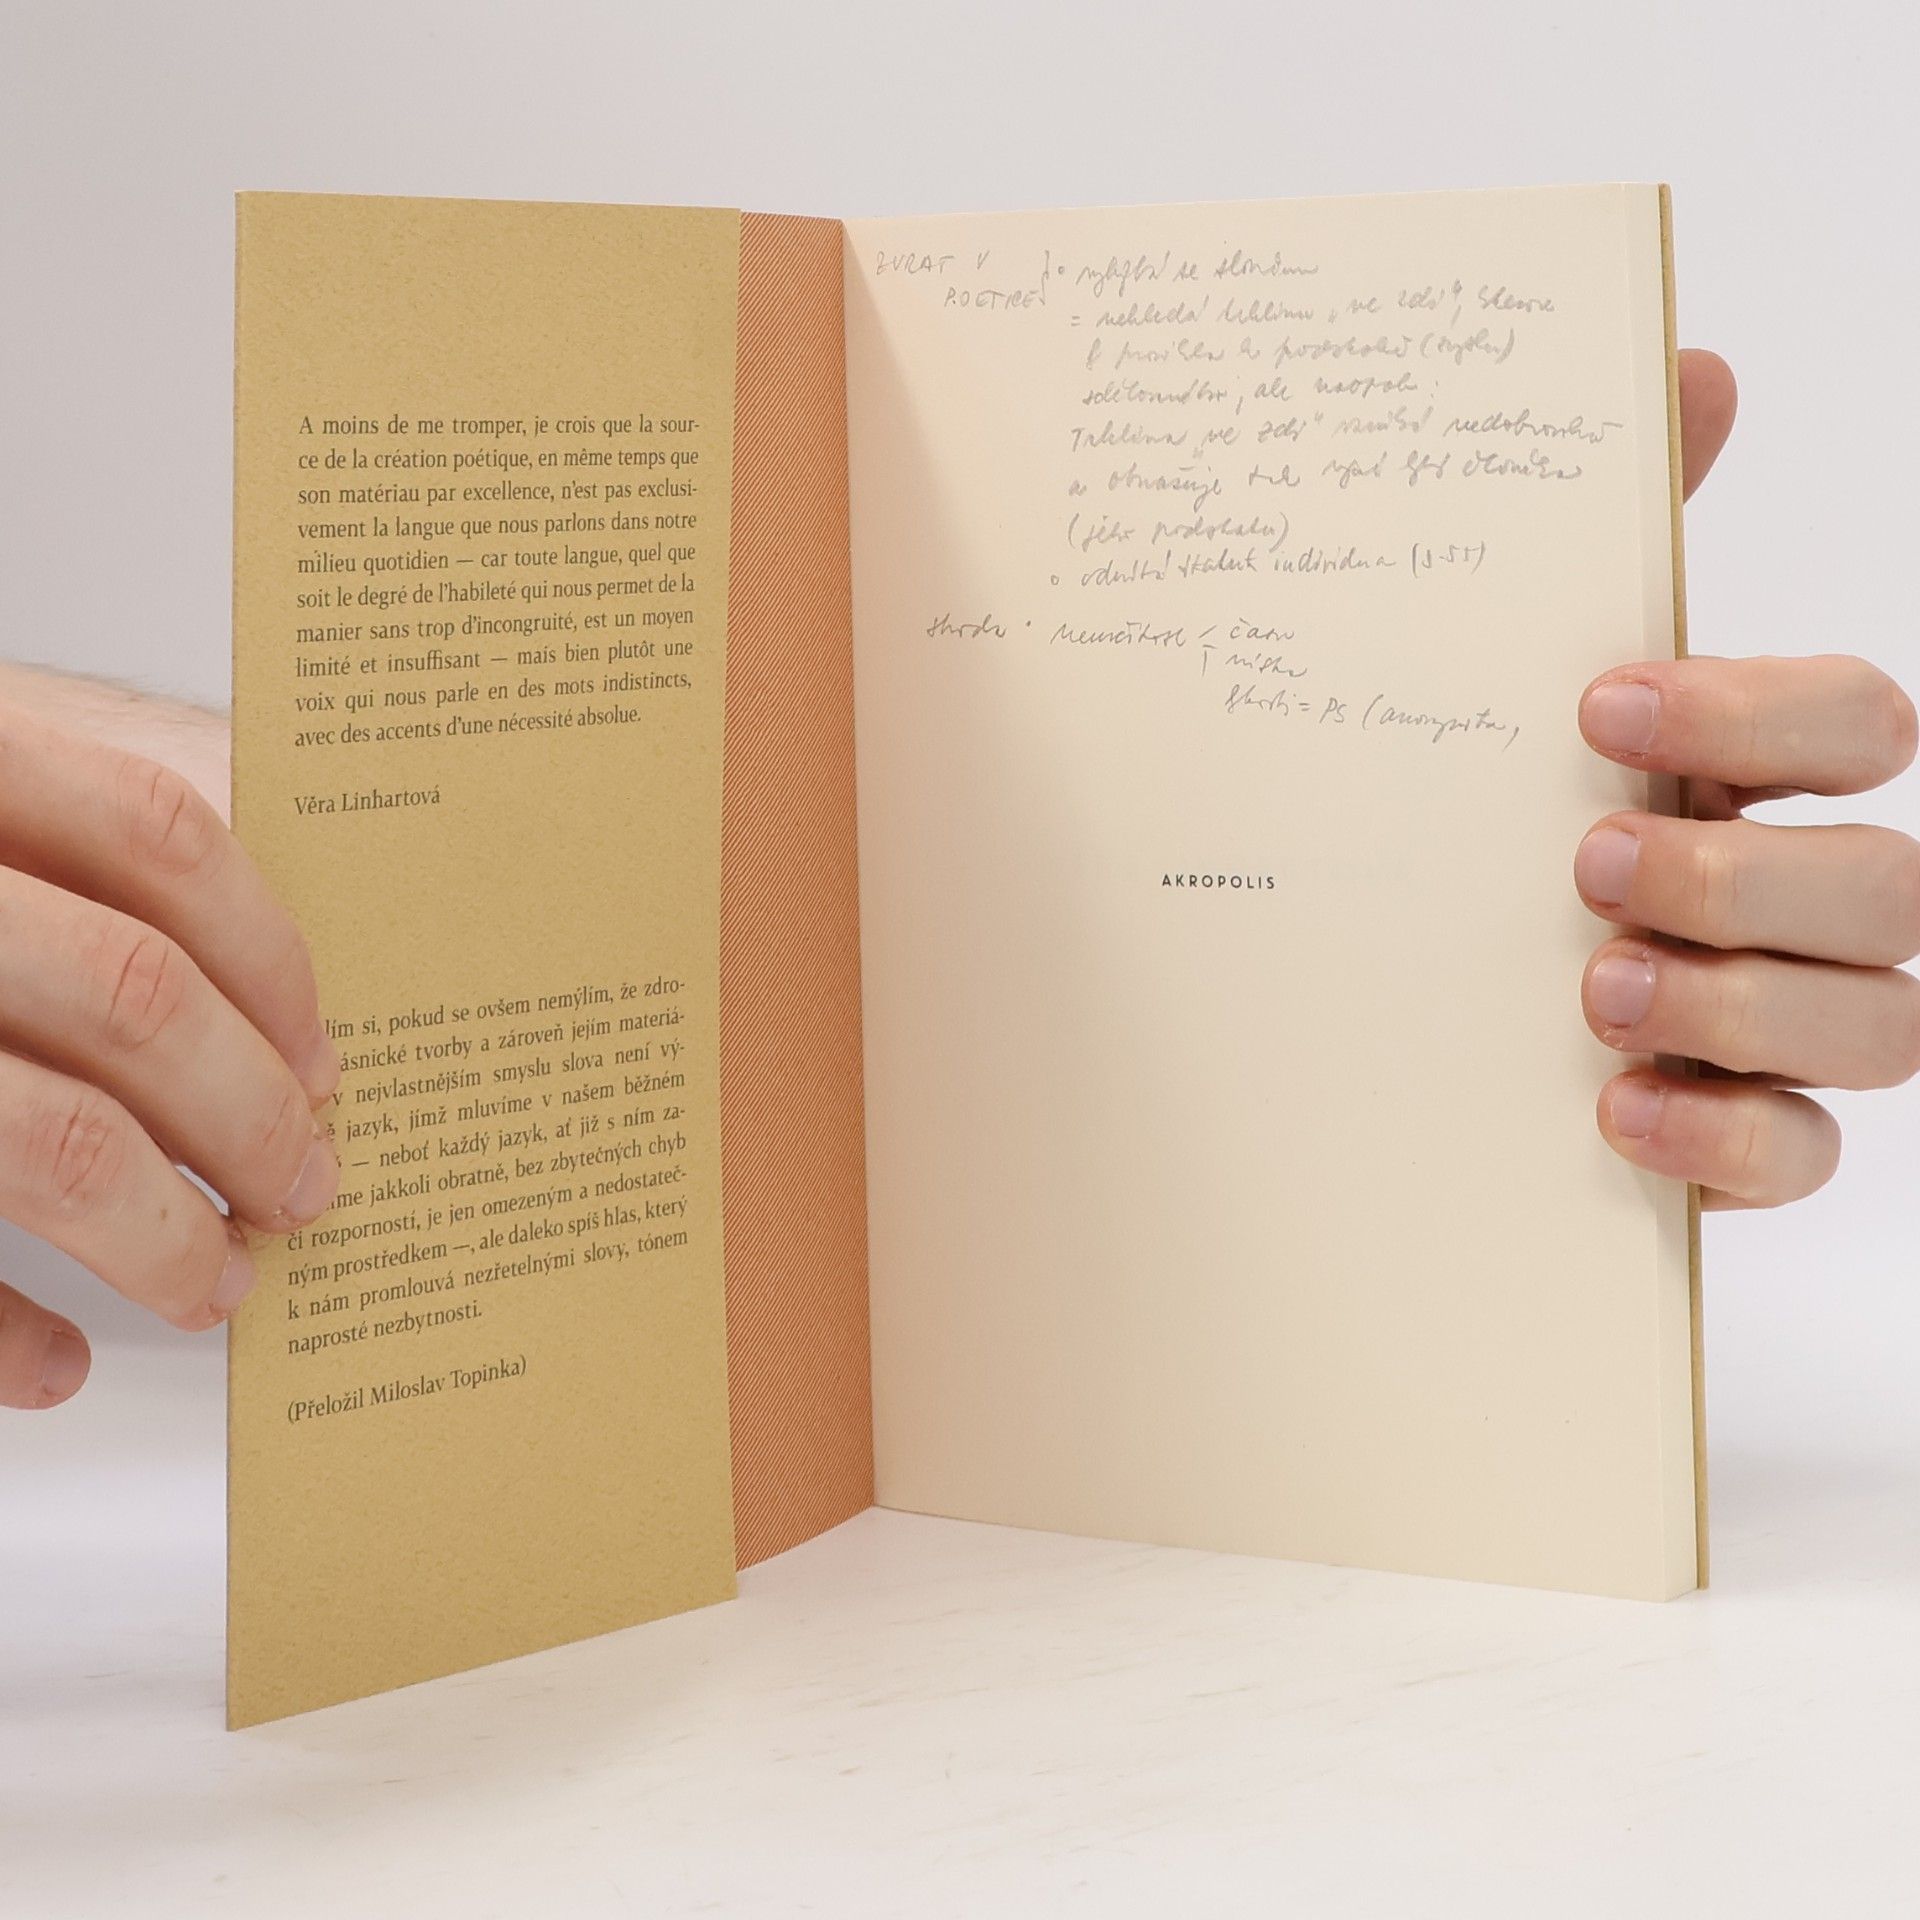 A moins de me tromper, je crois que la sour-
ce de la création poétique, en même temps que
son matériau par excellence, n'est pas exclusi-
vement la langue que nous parlons dans notre
milieu quotidien — car toute langue, quel que
soit le degré de l'habileté qui nous permet de la
manier sans trop d'incongruité, est un moyen
limité et insuffisant — mais bien plutôt une
voix qui nous parle en des mots indistincts,
avec des accents d'une nécessité absolue.
Věra Linhartová
lím si, pokud se ovšem nemýlím, že zdro-
ásnické tvorby a zároveň jejím materiá-
v nejvlastnějším smyslu slova není vý-
ě jazyk, jímž mluvíme v našem běžném
— neboť každý jazyk, ať již s ním za-
me jakkoli obratně, bez zbytečných chyb
či rozporností, je jen omezeným a nedostateč-
ným prostředkem —, ale daleko spíš hlas, který
k nám promlouvá nezřetelnými slovy, tónem
naprosté nezbytnosti.
(Přeložil Miloslav Topinka)
ZVRAT V
POETICE
se
= nehledá trhlinu „ve zdi“,
k podstatě
, ale naopak:
Trhlina „ve zdi“ vzniká nedobrovolně
a obnažuje tak
(jeho podstatu)
odmítá statut individua (s. 55)
neurčitost času
místa
AKROPOLIS